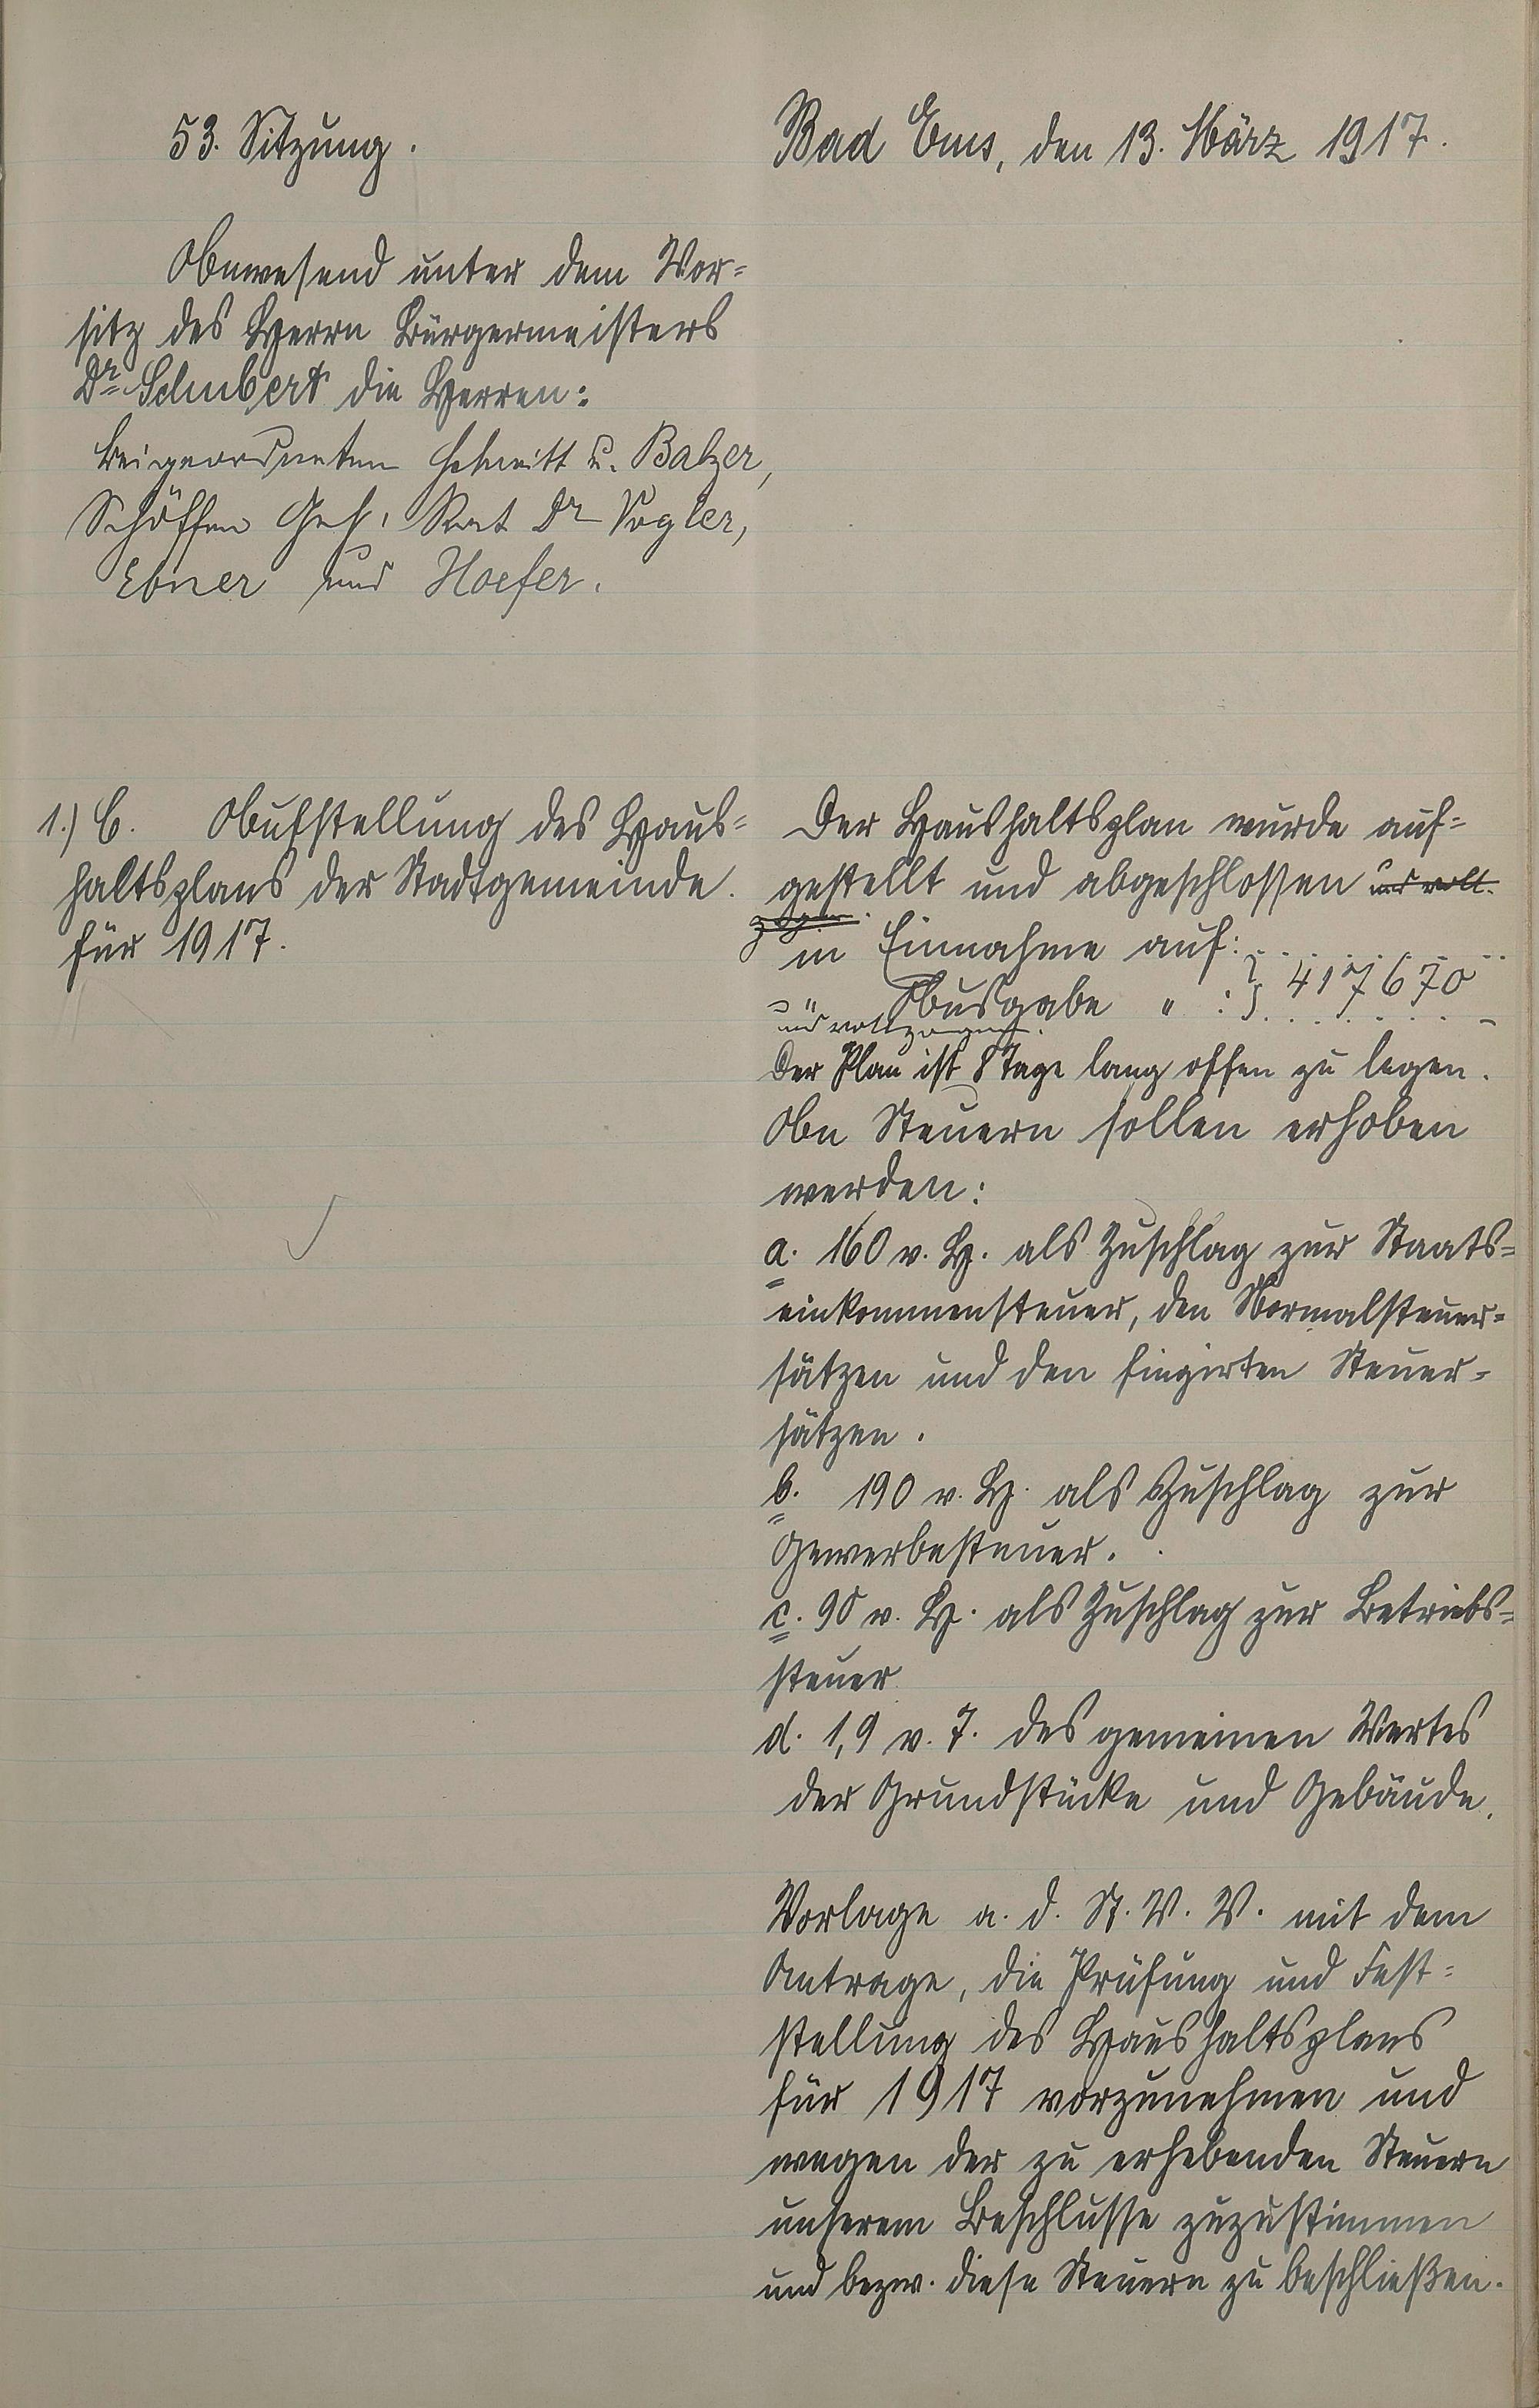 53. Sitzung.
Bad Ems, den 13. März 1917.
Anwesend unter dem Vor=
sitz des Herrn Bürgermeisters
Dr. Schubert die Herren:
Beigeordneten Schmitt u. Balzer,
Schöffen Geh. Rat Dr Vogler,
Ebner und Hoefer.
1.) C. Aufstellung des Haus=
haltsplans der Stadtgemeinde
für 1917.
Der Haushaltsplan wurde auf=
gestellt und abgeschlossen und voll.
zogen.
in Einnahme auf: . . . . . . . .
" Ausgabe " : } 417670
und vollzogen.
Der Plan ist 8 Tage lang offen zu legen.
An Steuern sollen erhoben
werden:
a. 160 v. H. als Zuschlag zur Staats=
einkommensteuer, den Normalsteuer=
sätzen und den fingirten Steuer=
sätzen.
b. 190 v. H. als Zuschlag zur
Gewerbesteuer.
c. 90 v. H. als Zuschlag zur Betriebs=
steuer
d. 1,9 v. T. des gemeinen Wertes
der Grundstücke und Gebäude.
Vorlage a. d. St. V. V. mit dem
Antrage, die Prüfung und Fest=
stellung des Haushaltsplans
für 1917 vorzunehmen und
wegen der zu erhebenden Steuern
unserem Beschlusse zuzustimmen
und bezw. diese Steuern zu beschließen.